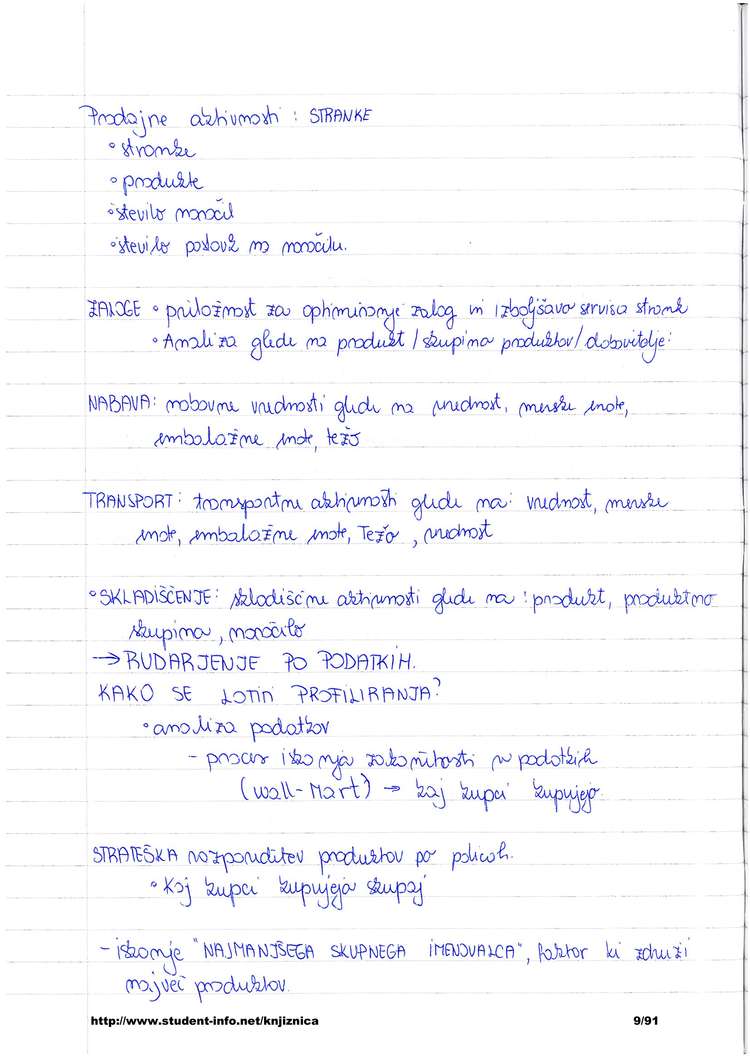 Prodajne aktivnosti : STRANKE
° stranke
° produkte
° število naročil
° število postavk na naročilu.
ZALOGE ° priložnost za optimiranje zalog in izboljšava servisa strank
° Analiza glede na produkt / skupina produktov / dobavitelje:
NABAVA: nabavne vrednosti glede na vrednost, merske enote,
embalažne enote, težo
TRANSPORT: transportne aktivnosti glede na: vrednost, merske
enote, embalažne enote, Težo , vrednost
° SKLADIŠČENJE: skladiščne aktivnosti glede na : produkt, produktna
skupina, naročilo
→ RUDARJENJE PO PODATKIH.
KAKO SE LOTIM PROFILIRANJA?
° analiza podatkov
- proces iskanja zakonitosti v podatkih
(Wall-Mart) → kaj kupci kupujejo
STRATEŠKA razporeditev produktov po policah.
° Kaj kupci kupujejo skupaj
- iskanje "NAJMANJŠEGA SKUPNEGA IMENOVALCA", faktor ki združi
največ produktov.
http://www.student-info.net/knjiznica 9/91